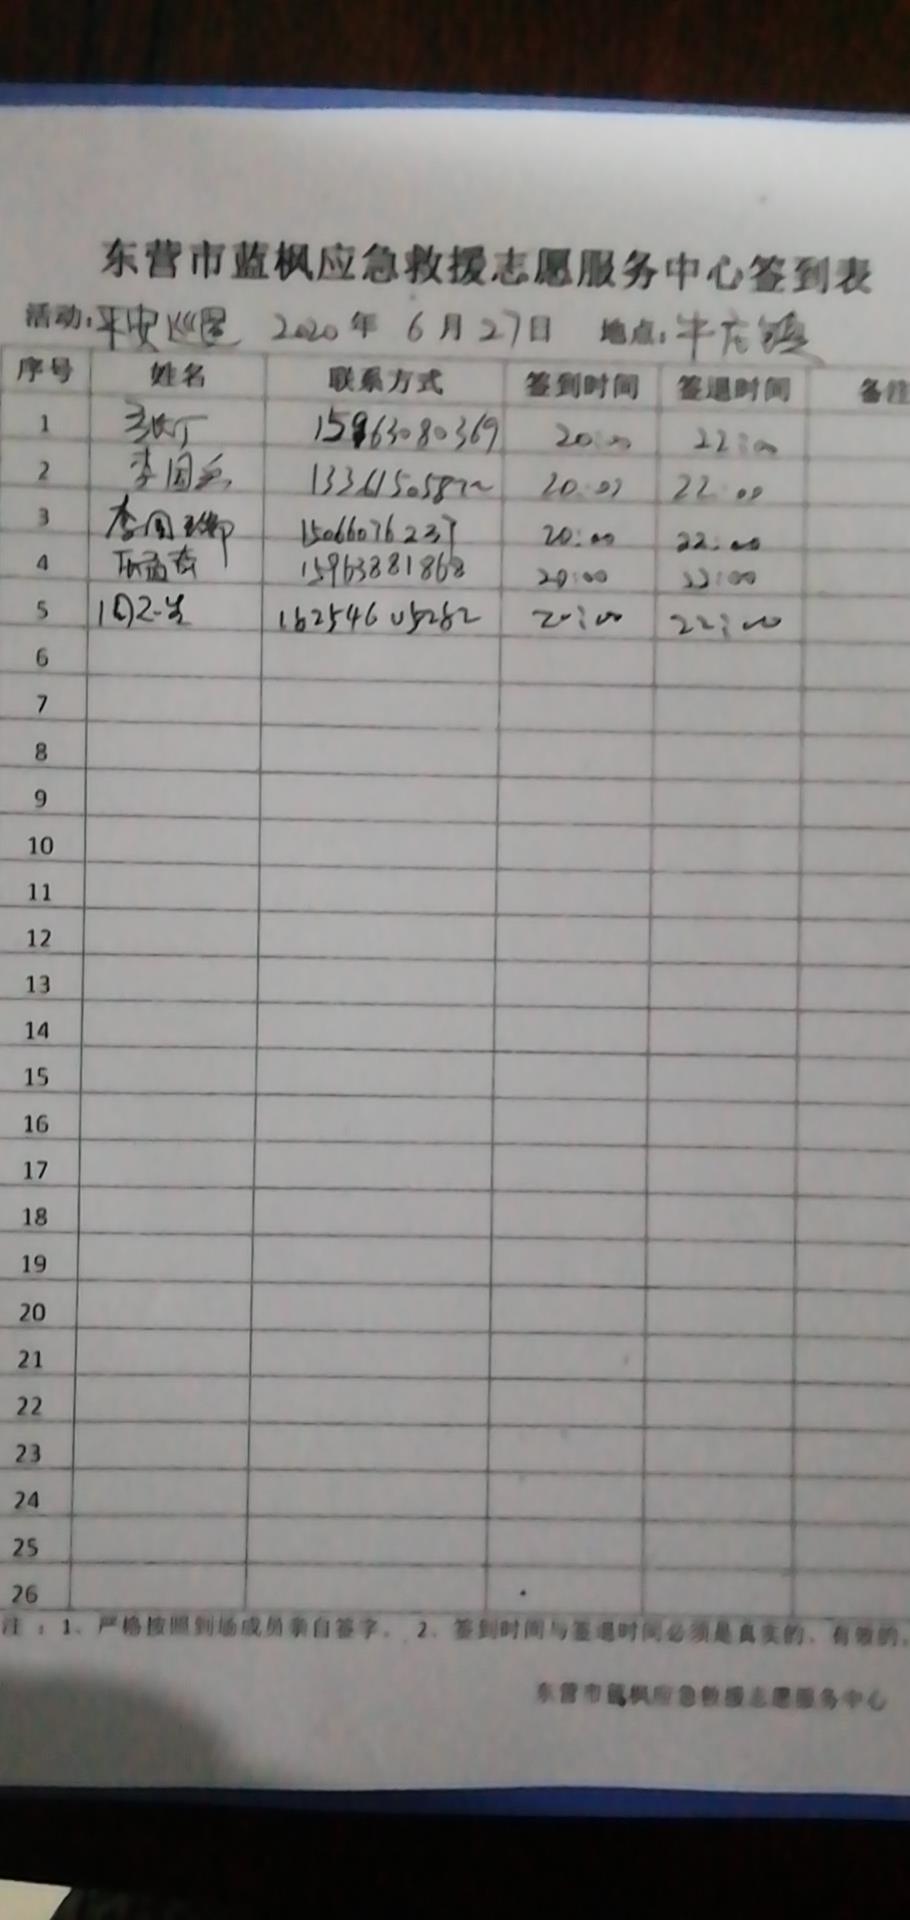 东营市蓝枫应急救援志愿服务中心签到表
活动:平安巡逻 2020年 6月27日 地点:牛庄镇
序号 姓名 联系方式 签到时间 签退时间 备注
1 15963080369 20:00 22:00
2 李国 20:00 22:00
3 李国 15066076237 20:00 22:00
4 15963881868 20:00 22:00
5 20:00 22:00
6
7
8
9
10
11
12
13
14
15
16
17
18
19
20
21
22
23
24
25
26
注:1、严格按照到场成员亲自签字。 2、签到时间与签退时间必须是真实的、有效的。
东营市蓝枫应急救援志愿服务中心